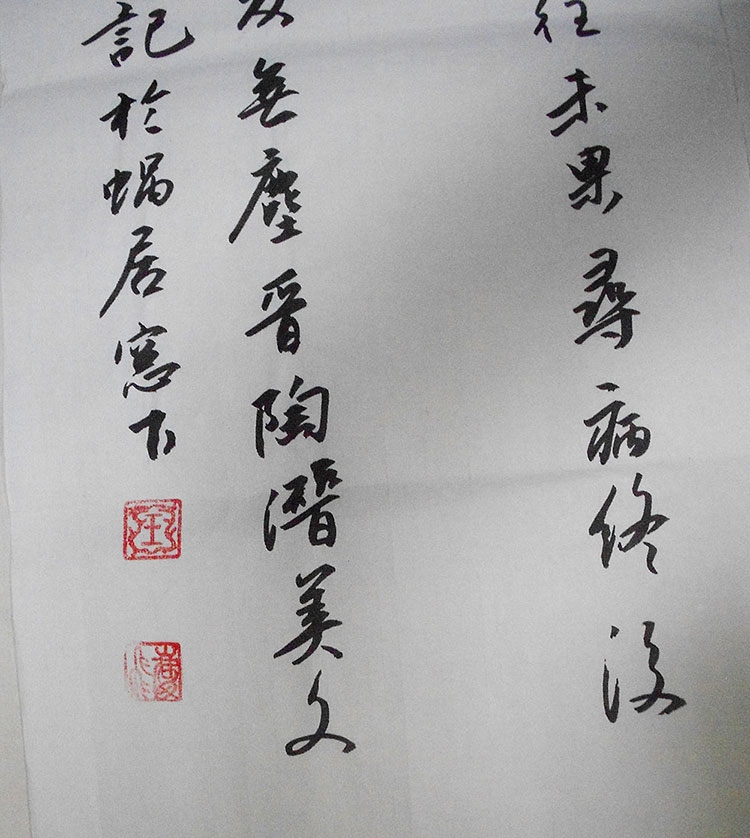 往未果尋病終後
無塵晉陶潛美文
記於蝸居窓下